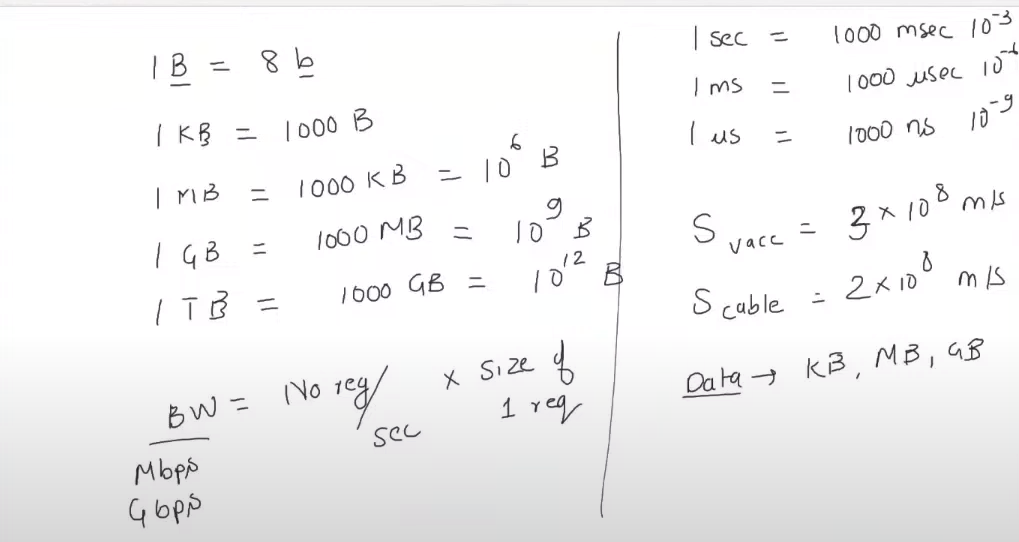 1 B = 8 b
1 KB = 1000 B
1 MB = 1000 KB = 10⁶ B
1 GB = 1000 MB = 10⁹ B
1 TB = 1000 GB = 10¹² B
BW = No req/sec × size of 1 req
Mbps
Gbps
1 sec = 1000 msec 10⁻³
1 ms = 1000 μsec 10⁻⁶
1 us = 1000 ns 10⁻⁹
S vacc = 3 × 10⁸ m/s
S cable = 2 × 10⁸ m/s
Data → KB, MB, GB